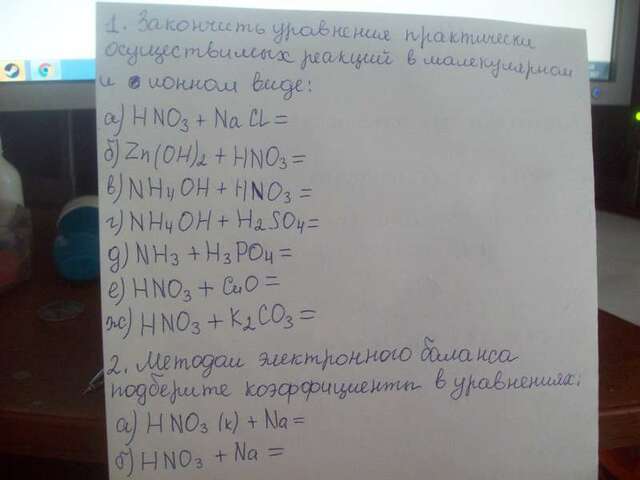 1. Закончить уравнения практически
осуществимых реакций в малекулярном
и ионном виде:
а) HNO3 + NaCL =
б) Zn(OH)2 + HNO3 =
в) NH4OH + HNO3 =
г) NH4OH + H2SO4 =
д) NH3 + H3PO4 =
е) HNO3 + CuO =
ж) HNO3 + K2CO3 =
2. Методам электронного баланса
подберите коэффициенты в уравнениях:
а) HNO3 (к) + Na =
б) HNO3 + Na =